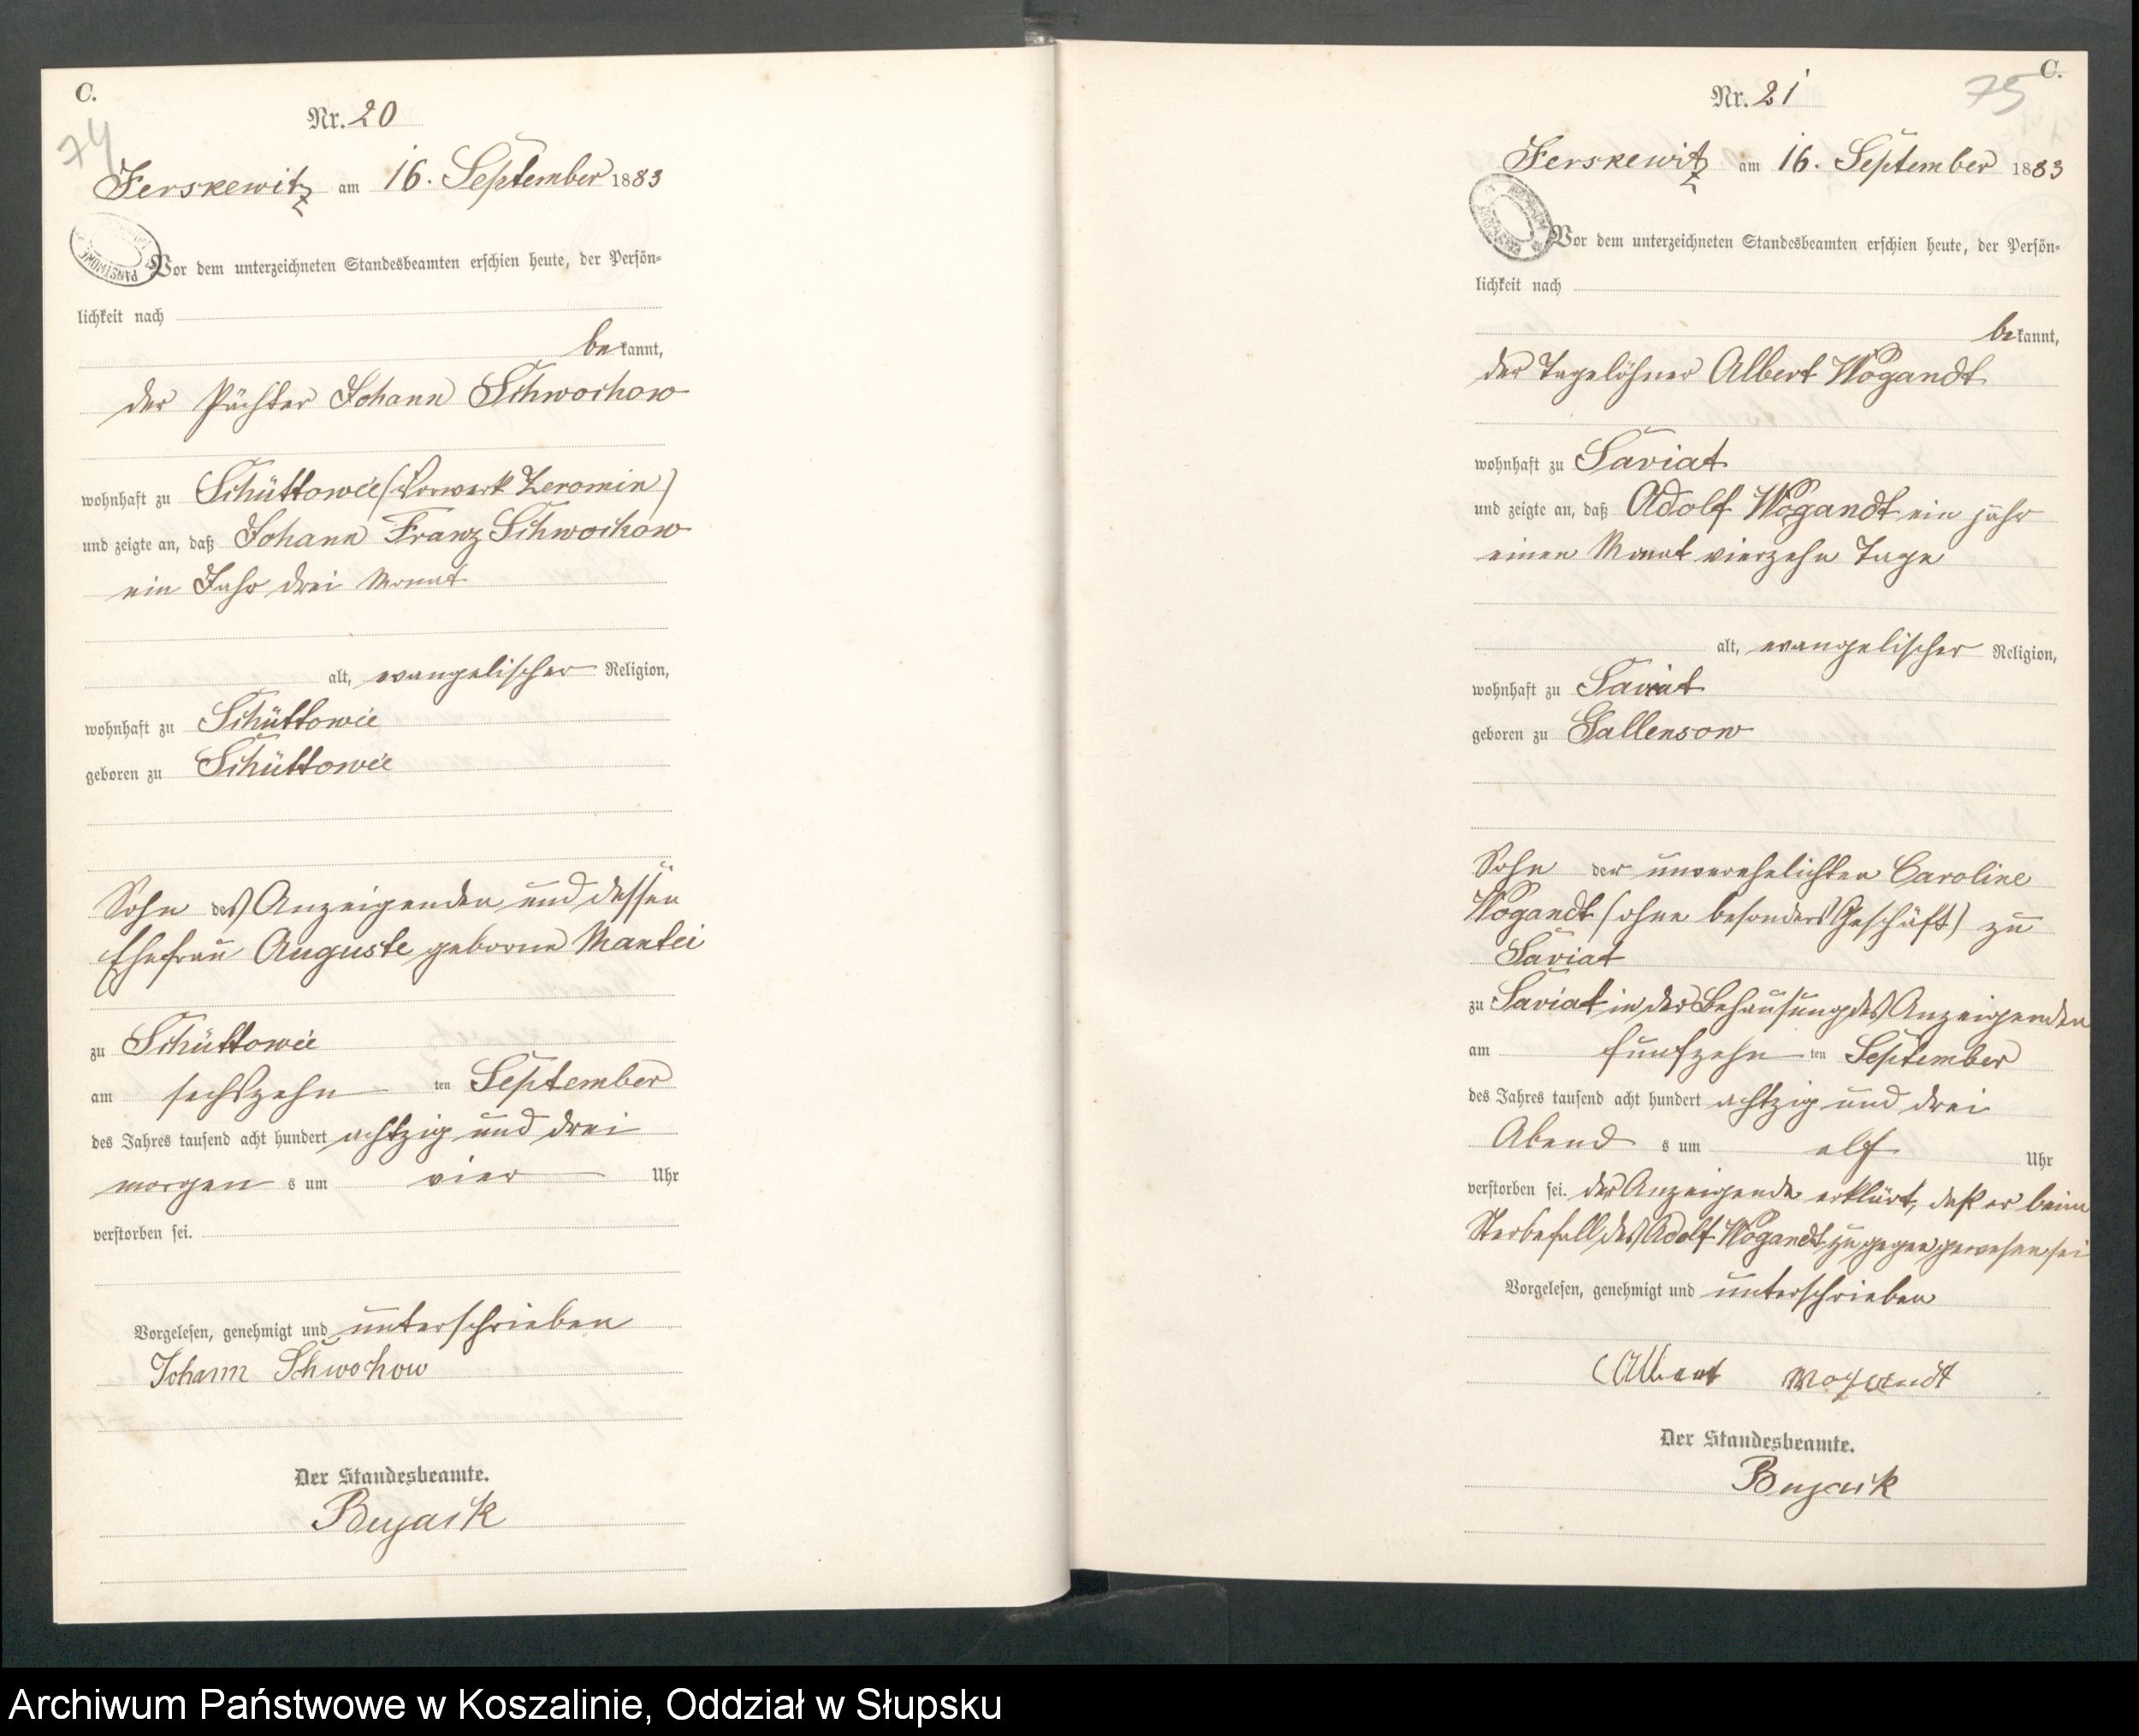 C.
Nr. 20
74
Ferskewitz am 16. September 1883
Vor dem unterzeichneten Standesbeamten erschien heute, der Persön-
lichkeit nach
bekannt,
der Pächter Johann Schwochow
wohnhaft zu Schüttowie (Vorwerk Zeromin)
und zeigte an, daß Johann Franz Schwochow
ein Jahr drei Monat
alt, evangelischer Religion,
wohnhaft zu Schüttowie
geboren zu Schüttowie
Sohn des Anzeigenden und dessen
Ehefrau Auguste geborne Mantei
zu Schüttowie
am sechszehn ten September
des Jahres tausend acht hundert achtzig und drei
morgen s um vier Uhr
verstorben sei.
Vorgelesen, genehmigt und unterschrieben
Johann Schwochow
Der Standesbeamte.
C.
75
Nr. 21
Ferskewitz am 16. September 1883
Vor dem unterzeichneten Standesbeamten erschien heute, der Persön-
lichkeit nach
bekannt,
der Tagelöhner Albert Wogandt
wohnhaft zu Saviat
und zeigte an, daß Adolf Wogandt ein Jahr
einen Monat vierzehn Tage
alt, evangelischer Religion,
wohnhaft zu Saviat
geboren zu Gallensow
Sohn der unverehelichten Caroline
Wogandt (ohne besonders Geschäft) zu
Saviat
zu Saviat in der Behausung des Anzeigenden
am fünfzehn ten September
des Jahres tausend acht hundert achtzig und drei
Abend s um elf Uhr
verstorben sei. der Anzeigende erklärt, daß er beim
Sterbefall des Adolf Wogandt zu gegen gewesen sei
Vorgelesen, genehmigt und unterschrieben
Albert Wogandt
Der Standesbeamte.
Archiwum Państwowe w Koszalinie, Oddział w Słupsku